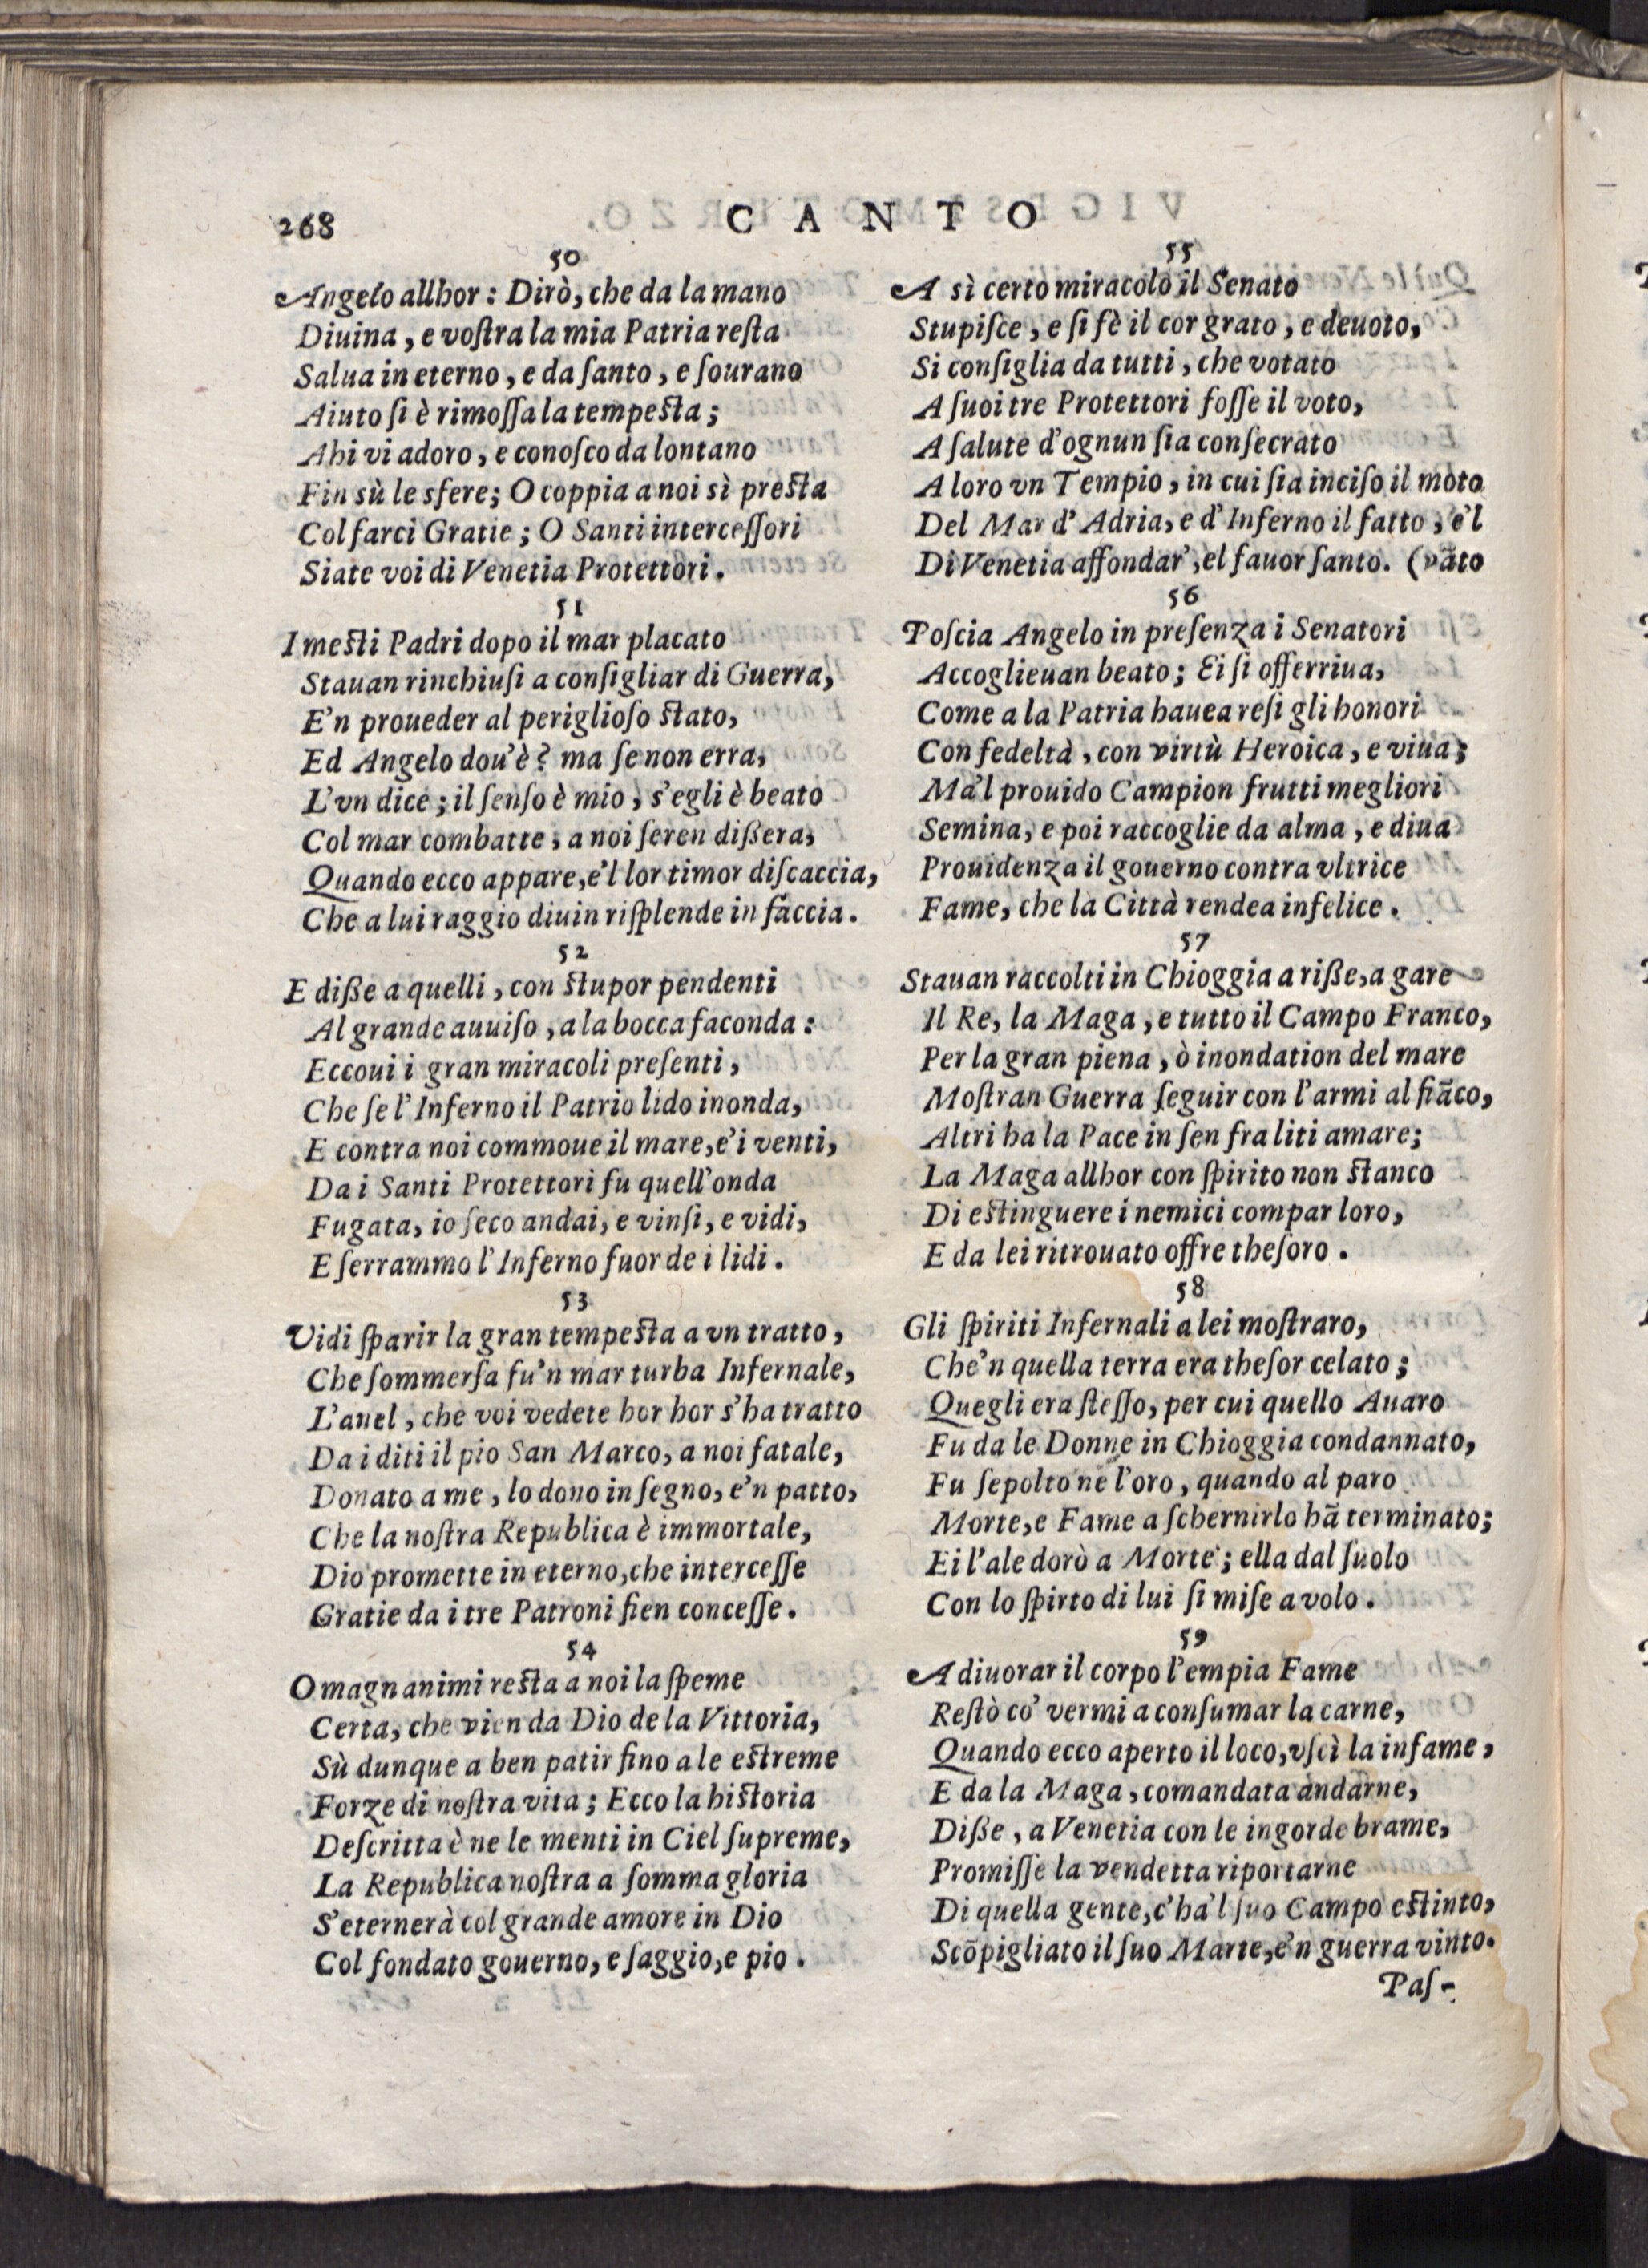 268
CANTO
50
Angelo allhor: Dirò, che da la mano
Diuina, e voſtra la mia Patria reſta
Salua in eterno, e da ſanto, e ſourano
Aiuto ſi è rimoſſa la tempeſta;
Ahi vi adoro, e conoſco da lontano
Fin sù le sfere; O coppia a noi sì preſta
Col farci Gratie; O Santi interceſſori
Siate voi di Venetia Protettori.
51
I meſti Padri dopo il mar placato
Stauan rinchiuſi a conſigliar di Guerra,
E'n proueder al periglioſo ſtato,
Ed Angelo dou'è? ma ſe non erra,
L'vn dice; il ſenſo è mio, s'egli è beato
Col mar combatte, a noi ſeren dißera,
Quando ecco appare, e'l lor timor diſcaccia,
Che a lui raggio diuin riſplende in faccia.
52
E diße a quelli, con ſtupor pendenti
Al grande auuiſo, a la bocca faconda:
Eccoui i gran miracoli preſenti,
Che ſe l'Inferno il Patrio lido inonda,
E contra noi commoue il mare, e'i venti,
Da i Santi Protettori fu quell'onda
Fugata, io ſeco andai, e vinſi, e vidi,
E ſerrammo l'Inferno fuor de i lidi.
53
Vidi ſparir la gran tempeſta a vn tratto,
Che ſommerſa fu'n mar turba Infernale,
L'anel, che voi vedete hor hor s'ha tratto
Da i diti il pio San Marco, a noi fatale,
Donato a me, lo dono in ſegno, e'n patto,
Che la noſtra Republica è immortale,
Dio promette in eterno, che interceſſe
Gratie da i tre Patroni fien conceſſe.
54
O magnanimi reſta a noi la ſpeme
Certa, che vien da Dio de la Vittoria,
Sù dunque a ben patir fino a le eſtreme
Forze di noſtra vita; Ecco la hiſtoria
Deſcritta è ne le menti in Ciel ſupreme,
La Republica noſtra a ſomma gloria
S'eternerà col grande amore in Dio
Col fondato gouerno, e ſaggio, e pio.
55
A sì certo miracolo il Senato
Stupiſce, e ſi fè il cor grato, e deuoto,
Si conſiglia da tutti, che votato
A ſuoi tre Protettori foſſe il voto,
A ſalute d'ognun ſia conſecrato
A loro vn Tempio, in cui ſia inciſo il moto
Del Mar d'Adria, e d'Inferno il fatto, e'l
Di Venetia affondar', el fauor ſanto. (vāto
56
Poſcia Angelo in preſenza i Senatori
Accoglieuan beato; Ei ſi offerriua,
Come a la Patria hauea reſi gli honori
Con fedeltà, con virtù Heroica, e viua;
Ma'l prouido Campion frutti megliori
Semina, e poi raccoglie da alma, e diua
Prouidenza il gouerno contra vltrice
Fame, che la Città rendea infelice.
57
Stauan raccolti in Chioggia a riße, a gare
Il Re, la Maga, e tutto il Campo Franco,
Per la gran piena, ò inondation del mare
Moſtran Guerra ſeguir con l'armi al fiāco,
Altri ha la Pace in ſen fra liti amare;
La Maga allhor con ſpirito non ſtanco
Di eſtinguere i nemici compar loro,
E da lei ritrouato offre theſoro.
58
Gli ſpiriti Infernali a lei moſtraro,
Che'n quella terra era theſor celato;
Quegli era ſteſſo, per cui quello Auaro
Fu da le Donne in Chioggia condannato,
Fu ſepolto ne l'oro, quando al paro
Morte, e Fame a ſchernirlo hā terminato;
Ei l'ale dorò a Morte; ella dal ſuolo
Con lo ſpirto di lui ſi miſe a volo.
59
A diuorar il corpo l'empia Fame
Reſtò co' vermi a conſumar la carne,
Quando ecco aperto il loco, vſcì la infame,
E da la Maga, comandata andarne,
Diße, a Venetia con le ingorde brame,
Promiſſe la vendetta riportarne
Di quella gente, c'ha'l ſuo Campo eſtinto,
Scōpigliato il ſuo Marte, e'n guerra vinto.
Paſ-